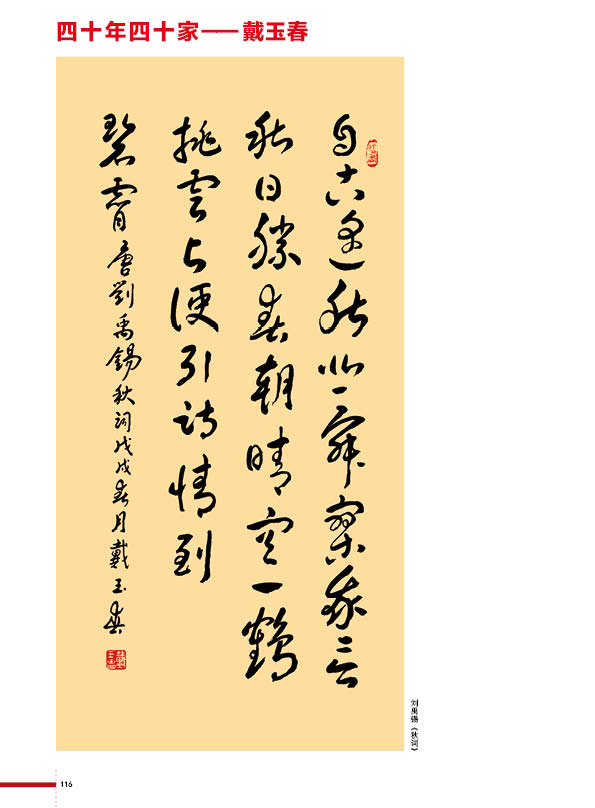 四十年四十家——戴玉春
自古逢秋悲寂寥我言
秋日勝春朝晴空一鶴
排雲上便引詩情到
碧霄 唐劉禹錫秋詞戊戌春月戴玉春
刘禹锡《秋词》
116